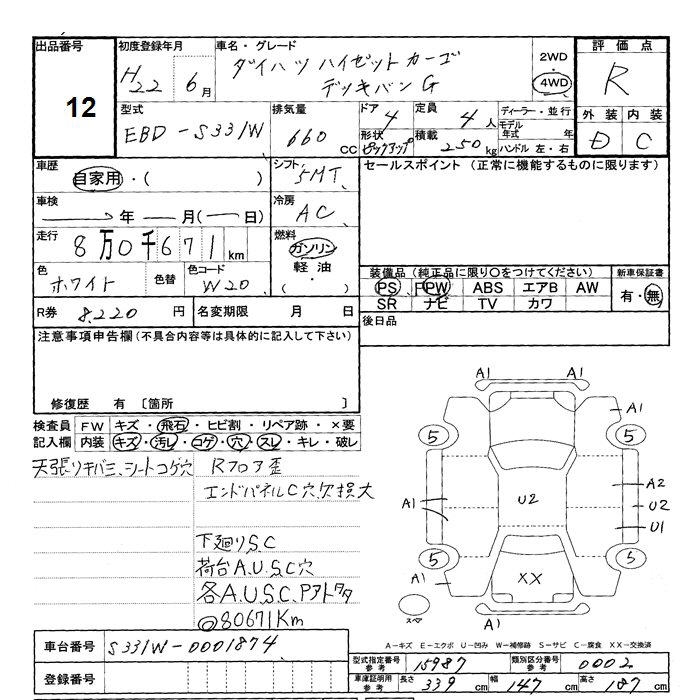 出品番号
12
初度登録年月
H22 6月
車名・グレード
ダイハツ ハイゼットカーゴ
デッキバン G
2WD
4WD
評価点
R
外装 内装
D C
型式
EBD-S331W
排気量
660 CC
ドア 4
形状
ピックアップ
定員 4人
積載 250 kg
ディーラー・並行
モデル
年式 年
ハンドル 左・右
車歴
自家用・( )
シフト
5MT
車検
年 月( 日)
冷房
AC
走行
8万0千671km
燃料
ガソリン
軽油
・( )
色
ホワイト
色替
色コード
W20
R券 8,220 円
名変期限 月 日
セールスポイント (正常に機能するものに限ります)
装備品(純正品に限り〇をつけてください)
PS PW ABS エアB AW
SR ナビ TV カワ
新車保証書
有・無
後日品
注意事項申告欄(不具合内容等は具体的に記入して下さい)
修復歴 有 〔箇所 〕
検査員 FW キズ・飛石・ヒビ割・リペア跡・×要
記入欄 内装 キズ・汚レ・コゲ・穴・スレ・キレ・破レ
天張リキバミ、シートコゲ穴
Rフロア歪
エンドパネルC穴欠損大
下廻りS.C
荷台A.U.S.C穴
各A.U.S.C.Pアトタタ
◎80671Km
A1 A1
A1
5 5
A2
U2 U2
A1
U1
5 5
A1
XX
スペア
A1
A-キズ E-エクボ U-凹み W-補修跡 S-サビ C-腐食 XX-交換済
車台番号 S331W-0001874
登録番号
型式指定番号
参考
15987
類別区分番号
参考
0002
車庫証明用
参考
長さ 339 cm 幅 147 cm 高さ 187 cm